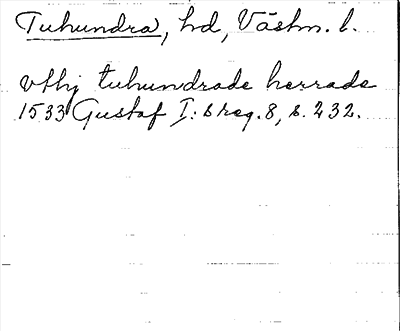 Tuhundra, hd, Västm. l.
vthj tuhundrade herrade
1533 Gustaf I: s reg. 8, s. 232.